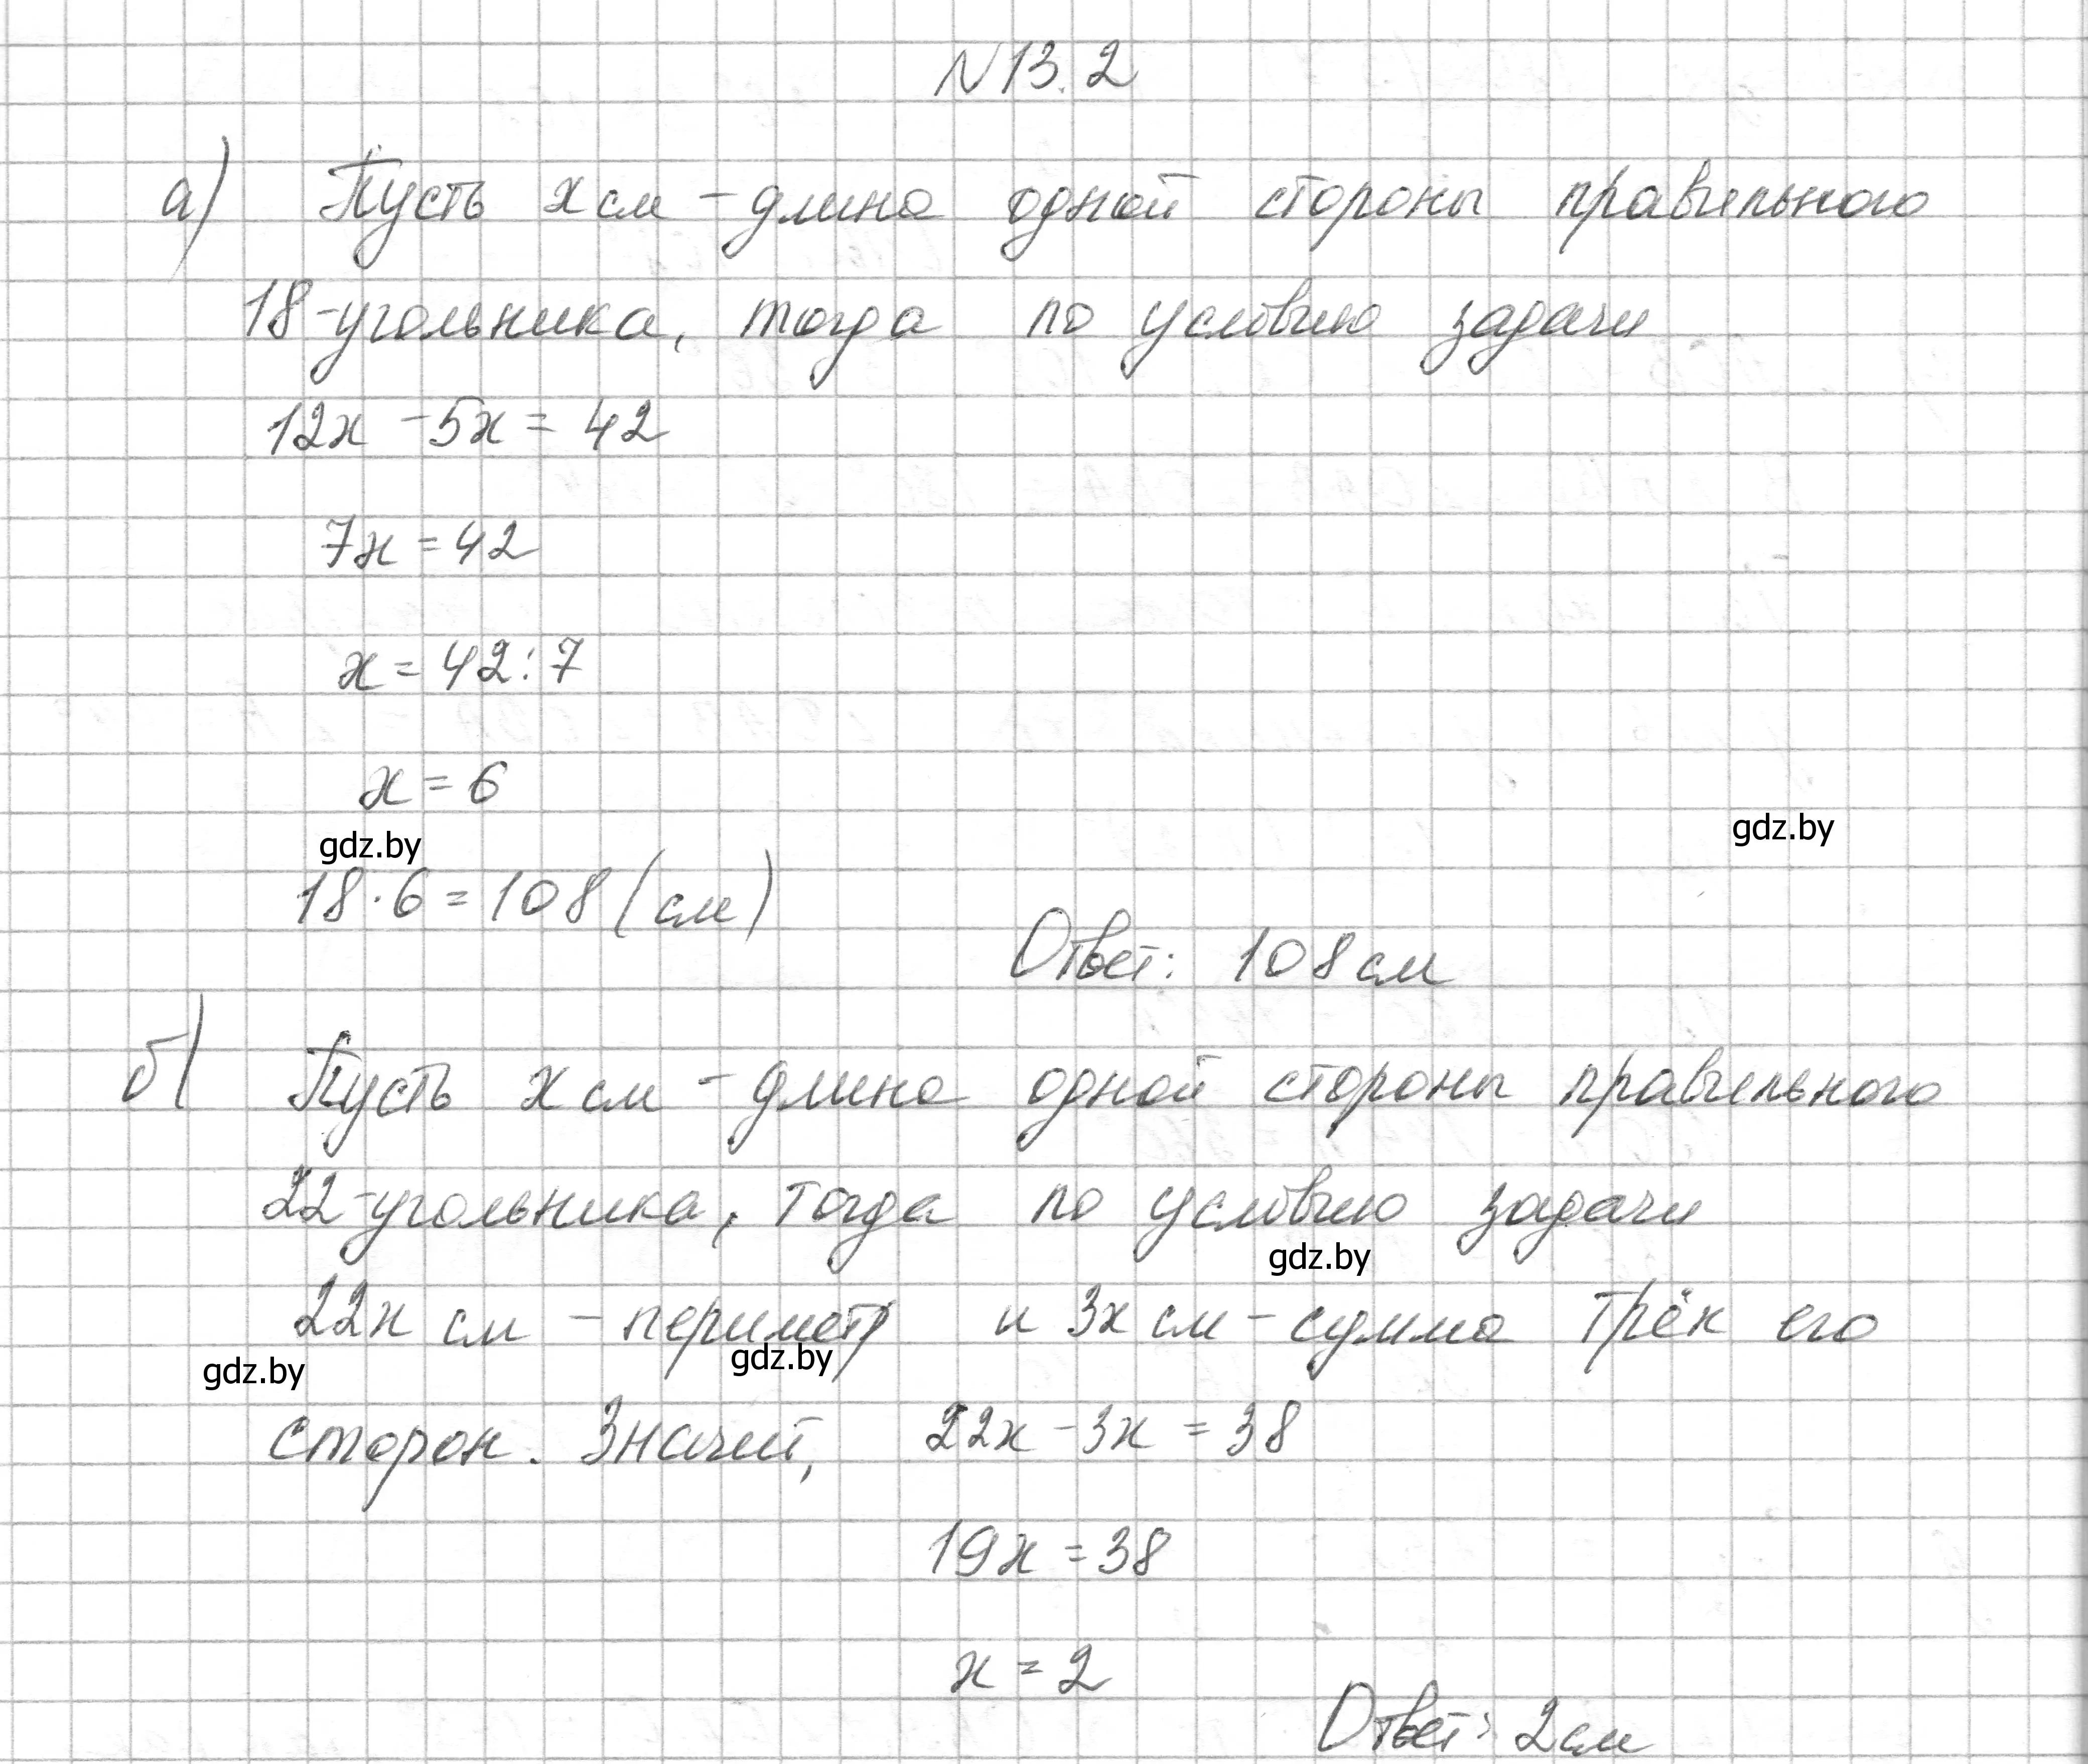 N 13.2
а) Пусть x см - длина одной стороны правильного
18-угольника, тогда по условию задачи
12x - 5x = 42
7x = 42
x = 42 : 7
x = 6
gdz.by
gdz.by
18 · 6 = 108 (см)
Ответ: 108 см
б) Пусть x см - длина одной стороны правильного
22-угольника, тогда по условию задачи
gdz.by
22x см - периметр и 3x см - сумма трёх его
gdz.by
gdz.by
сторон. Значит, 22x - 3x = 38
19x = 38
x = 2
Ответ: 2 см